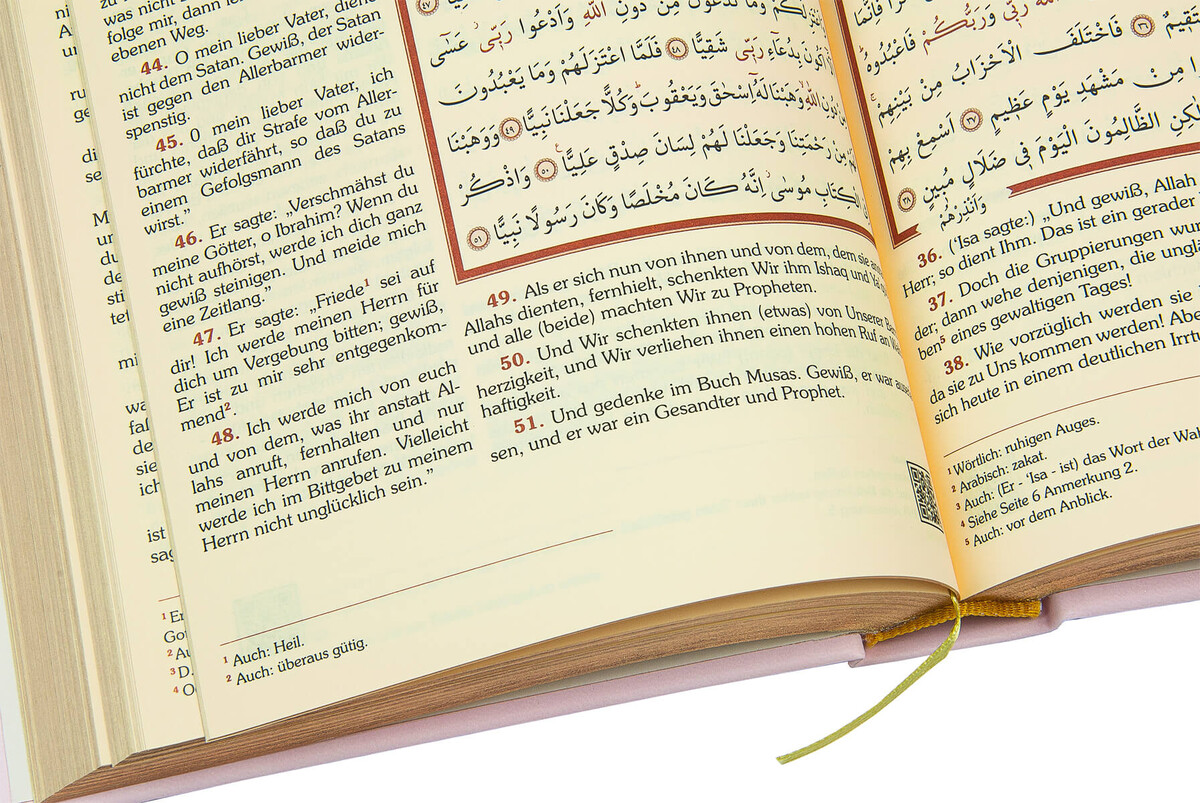 was nicht
zu
folge mir, dann
ebenen Weg.
44. O mein lieber Vater, diene
nicht dem Satan. Gewiß, der Satan
ist gegen den Allerbarmer wider-
spenstig.
45. O mein lieber Vater, ich
fürchte, daß dir Strafe vom Aller-
barmer widerfährt, so daß du zu
einem Gefolgsmann des Satans
wirst.”
46. Er sagte: „Verschmähst du
meine Götter, o Ibrahim? Wenn du
nicht aufhörst, werde ich dich ganz
gewiß steinigen. Und meide mich
eine Zeitlang.”
47. Er sagte: „Friede¹ sei auf
dir! Ich werde meinen Herrn für
dich um Vergebung bitten; gewiß,
Er ist zu mir sehr entgegenkom-
mend².
48. Ich werde mich von euch
und von dem, was ihr anstatt Al-
lahs anruft, fernhalten und nur
meinen Herrn anrufen. Vielleicht
werde ich im Bittgebet zu meinem
Herrn nicht unglücklich sein.”
وَمَا تَدْعُونَ مِنْ دُونِ اللّٰهِ وَاَدْعُوا رَبّ۪ىۘ عَسٰٓى
اَكُونَ بِدُعَٓاءِ رَبّ۪ى شَقِيًّا ﴿٤٨﴾ فَلَمَّا اعْتَزَلَهُمْ وَمَا يَعْبُدُونَ
دُونِ اللّٰهِۙ وَهَبْنَا لَهُٓ اِسْحٰقَ وَيَعْقُوبَۜ وَكُلًّا جَعَلْنَا نَبِيًّا ﴿٤٩﴾ وَوَهَبْنَا
مِنْ رَحْمَتِنَا وَجَعَلْنَا لَهُمْ لِسَانَ صِدْقٍ عَلِيًّا۟ ﴿٥٠﴾ وَاذْكُرْ
الْكِتَابِ مُوسٰٓىۘ اِنَّهُ كَانَ مُخْلَصًا وَكَانَ رَسُولًا نَبِيًّا ﴿٥١﴾
49. Als er sich nun von ihnen und von dem, dem sie
Allahs dienten, fernhielt, schenkten Wir ihm Ishaq und
und alle (beide) machten Wir zu Propheten.
50. Und Wir schenkten ihnen (etwas) von Unserer
herzigkeit, und Wir verliehen ihnen einen hohen Ruf an
haftigkeit.
51. Und gedenke im Buch Musas. Gewiß, er war
sen, und er war ein Gesandter und Prophet.
¹ Auch: Heil.
² Auch: überaus gütig.
رَبّ۪ى وَرَبُّكُمْ فَاعْبُدُوهُۜ
﴿٣٦﴾ فَاخْتَلَفَ الْاَحْزَابُ مِنْ بَيْنِهِمْۚ
مِنْ مَشْهَدِ يَوْمٍ عَظ۪يمٍ ﴿٣٧﴾ اَسْمِعْ بِهِمْ
الظَّالِمُونَ الْيَوْمَ ف۪ى ضَلَالٍ مُب۪ينٍ ﴿٣٨﴾
وَاَنْذِرْهُمْ
36. (‘Isa sagte:) „Und gewiß, Allah
Herr; so dient Ihm. Das ist ein gerader
37. Doch die Gruppierungen
der; dann wehe denjenigen, die
ben⁵ eines gewaltigen Tages!
38. Wie vorzüglich werden sie
da sie zu Uns kommen werden!
sich heute in einem deutlichen
¹ Wörtlich: ruhigen Auges.
² Arabisch: zakat.
³ Auch: (Er - ‘Isa - ist) das Wort der
⁴ Siehe Seite 6 Anmerkung 2.
⁵ Auch: vor dem Anblick.